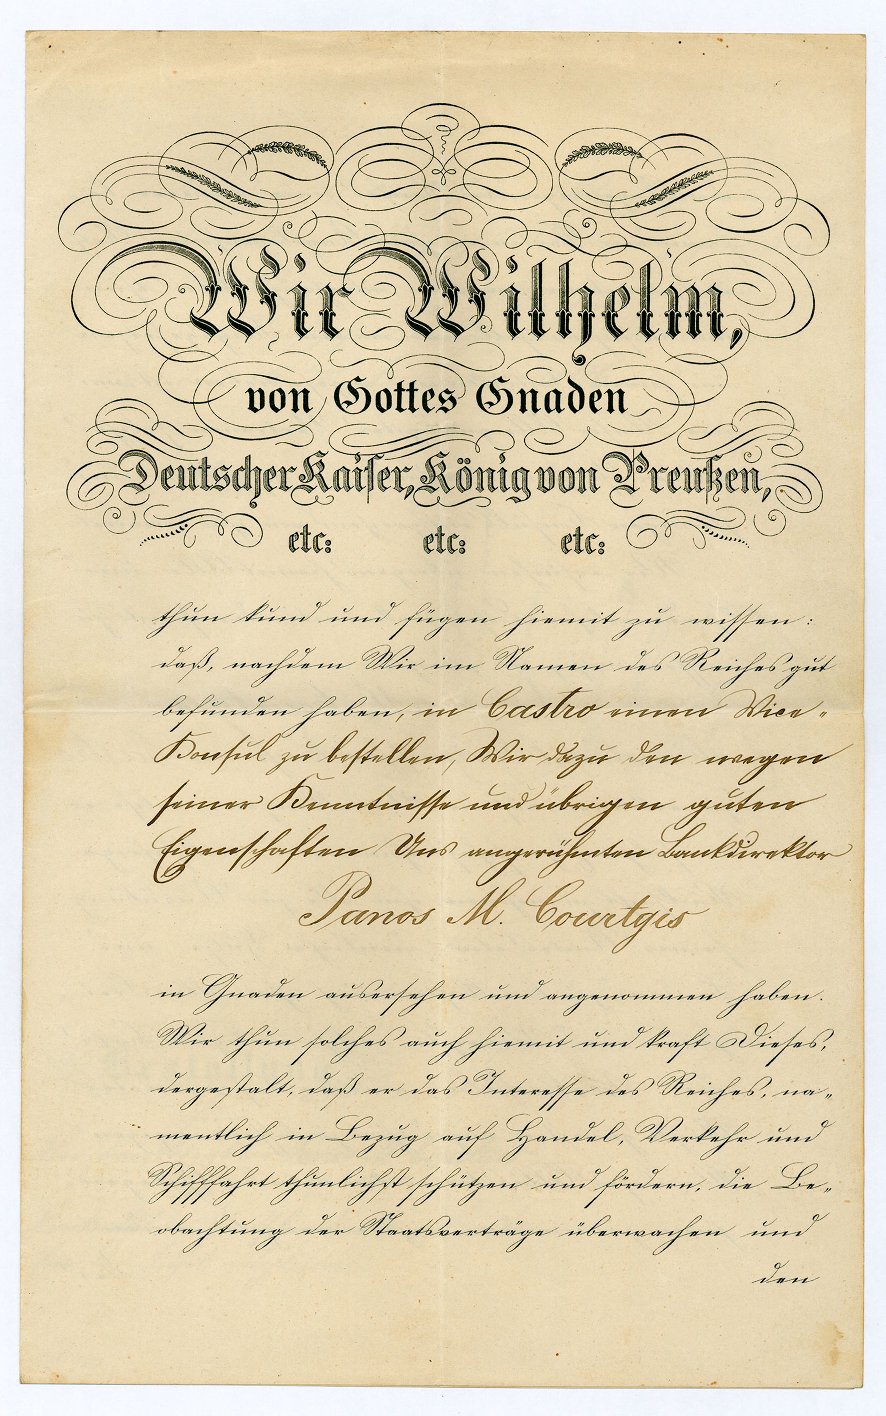 Wir Wilhelm,
von Gottes Gnaden
Deutscher Kaiser, König von Preußen,
etc: etc: etc:
thun kund und fügen hiemit zu wissen:
daß, nachdem Wir im Namen des Reiches gut
befunden haben, in Castro einen Vice-
Konsul zu bestellen, Wir dazu den wegen
seiner Kenntnisse und übrigen guten
Eigenschaften Uns angerühmten Bankdirektor
Panos M. Courtgis
in Gnaden ausersehen und angenommen haben.
Wir thun solches auch hiemit und kraft Dieses,
dergestalt, daß er das Interesse des Reiches, na-
mentlich in Bezug auf Handel, Verkehr und
Schifffahrt thunlichst schützen und fördern, die Be-
obachtung der Staatsverträge überwachen und
den